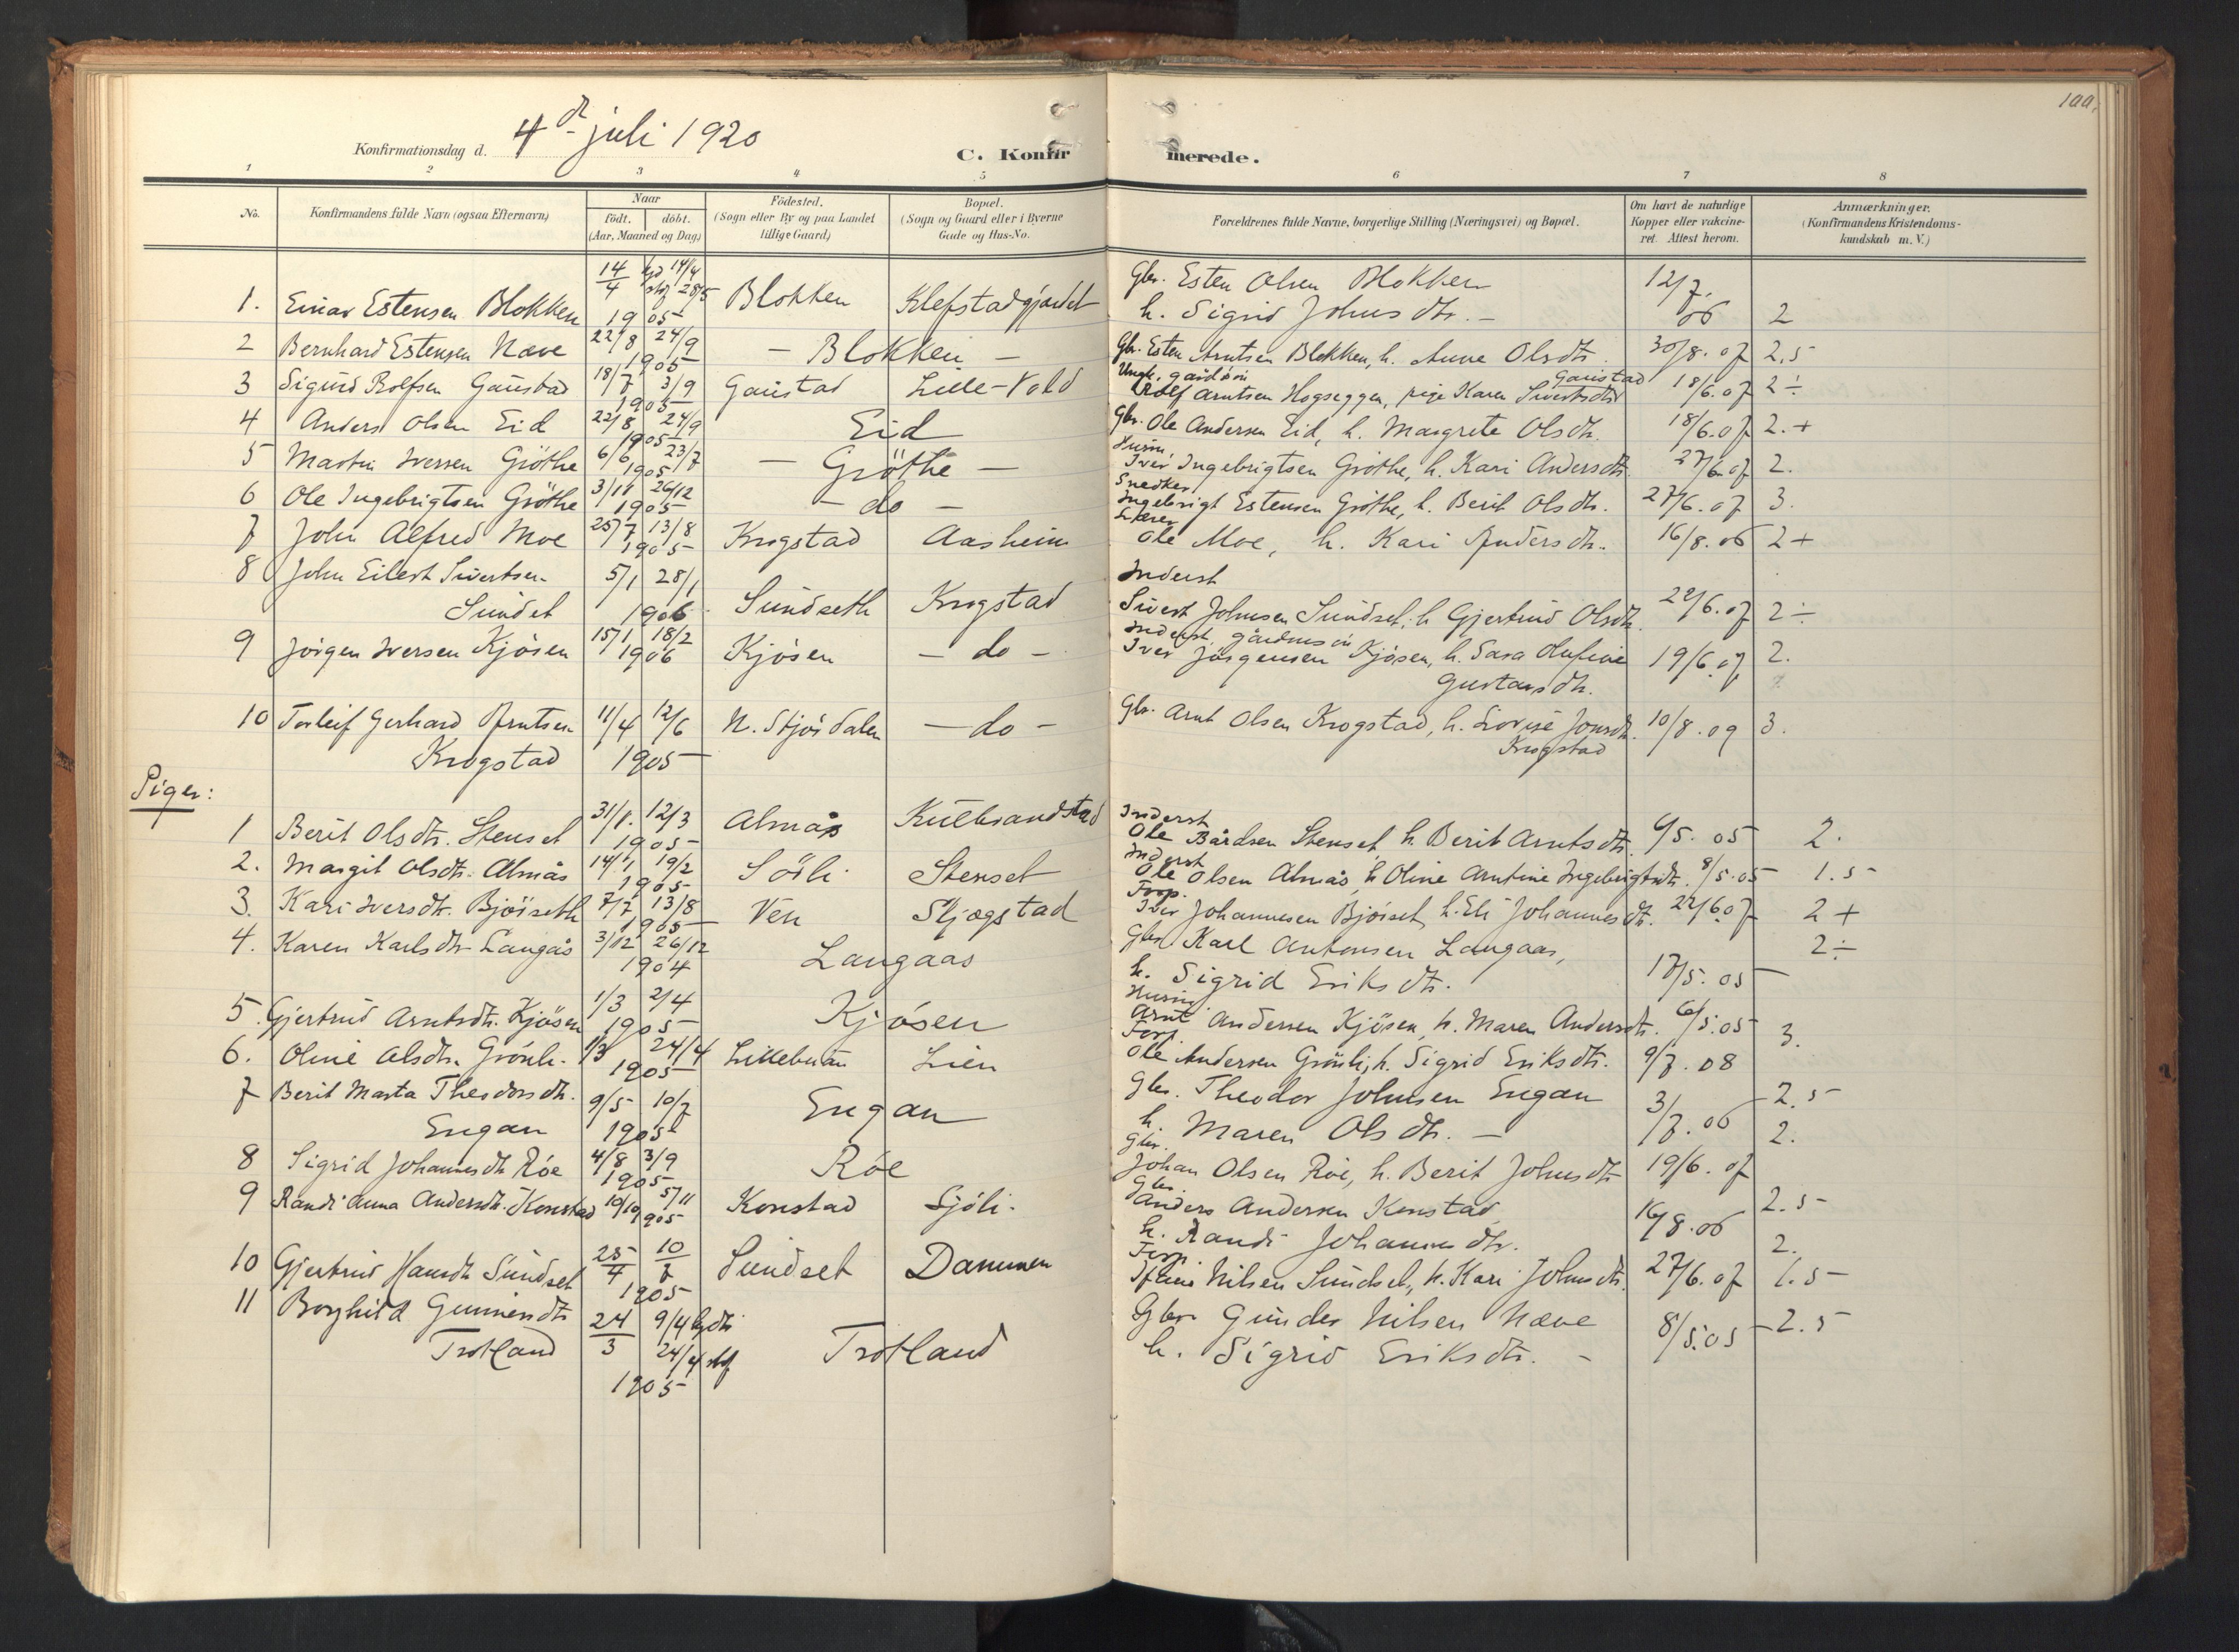 100.
Konfirmationsdag d. 4de juli 1920
C. Konfirmerede.
1 2 3 4 5 6 7 8
No.
Konfirmandens fulde Navn (ogsaa Efternavn)
Naar
födt. döbt.
(Aar, Maaned og Dag.)
Födested.
(Sogn eller By og paa Landet
tillige Gaard.)
Bopæl.
(Sogn og Gaard eller i Byerne
Gade og Hus-No.
Forældrenes fulde Navne, borgerlige Stilling (Næringsvei) og Bopæl.
Om havt de naturlige
Kopper eller vakcine-
ret. Attest herom.
Anmærkninger.
(Konfirmandens Kristendoms-
kundskab m. V.)
1. Einar Estensen Blokken 14/4 hjd 14/4 stf 28/5 1905 Blokken Klefstadgjærdet Gbr. Esten Olsen Blokken
h. Sigrid Johnsdtr. — 12/7. 06 2
2 Bernhard Estensen Næve 22/8 24/9 1905 — Blokken — Gbr. Esten Arntsen Blokken, h. Anne Olsdtr. 30/8. 07 2,5
3 Sigurd Rolfsen Gaustad 18/7 3/9 1905 Gaustad Lille-Vold Ungk. gaardsøn Gaustad
Rolf Arntsen Hogseggen, pige Karen Sivertsdtr 18/6.07 2 ÷
4 Anders Olsen Eid 22/8 24/9 1905 Eid Gbr. Ole Andersen Eid, h. Margrete Olsdtr. 18/6.07 2.+
5 Martin Iversen Gröthe 6/6 23/7 1905 — Gröthe — Husm.
Iver Ingebrigtsen Gröthe, h. Kari Andersdtr. 27/6.07 2.
6 Ole Ingebrigtsen Gröthe 3/11 26/12 1905 — do — Snedker
Ingebrigt Estensen Gröthe, h. Berit Olsdtr. 27/6.07 3.
7 John Alfred Moe 25/7 13/8 1905 Krogstad Aasheim Lærer
Ole Moe, h. Kari Andersdtr. 16/8.06 2+
8 John Eilert Sivertsen
Sundet 5/1 28/1 1906 Sundseth Krogstad Inderst
Sivert Johnsen Sundset, h Gjertrud Olsdtr. 22/6.07 2 ÷
9 Jörgen Iversen Kjösen 15/1 18/2 1906 Kjösen — do — Inderst, gårdmsön
Iver Jörgensen Kjösen, h. Sara Olufine
Gustavsdtr. 19/6.07 2.
10 Torleif Gerhard Arntsen
Krogstad 11/4 12/6 1905 N. Stjördalen — do — Gbr. Arnt Olsen Krogstad, h. Lovise Jonsdtr.
Krogstad 10/8.09 3.
Piger:
1 Berit Olsdtr. Stenset 31/1. 12/3 1905 Almås Kulbrandstad Inderst
Ole Bårdsen Stenset, h. Berit Arntsdtr. 6/5. 05 2.
2. Margit Olsdtr. Almås 14/1 19/2 1905 Sörli Stenset Inderst
Ole Olsen Almås, h Oline Arntine Ingebrigtsdtr. 8/5.05 1.5
3. Kari Iversdtr. Bjöiseth 7/7 13/8 1905 Ven Skjøgstad Forp.
Iver Johannesen Bjöiset, h. Eli Johannesdtr. 22/6.07 2 +
4. Karen Karlsdtr Langås 3/12 26/12 1904 Langaas Gbr. Karl Antonsen Langaas,
h. Sigrid Eriksdtr. 17/5. 05 2 ÷
5. Gjertrud Arntsdtr. Kjösen 1/3 2/4 1905 Kjösen Husm.
Arnt Andersen Kjösen, h. Maren Andersdtr. 6/5.05 3.
6. Oline Olsdtr. Grönli. 1/3 24/4 1905 Lillebuan Lien Forp.
Ole Andersen Grönli, h. Sigrid Eriksdtr. 9/7. 08
7 Berit Marta Theodorsdtr.
Engan 9/5 10/7 1905 Engan Gbr. Theodor Johnsen Engan
h. Maren Olsdtr. — 3/7.06 2.5
8 Sigrid Johannesdtr Röe 4/8 3/9 1905 Röe Gbr.
Johan Olsen Röe, h. Berit Johnsdtr 19/6. 07 2.
9 Randi Anna Andersdtr. Konstad 10/10 5/11 1905 Konstad Sjöli. Gbr.
Anders Andersen Konstad
h. Randi Johannesdtr. 16/8.06 2.5
10 Gjertrud Hansdtr Sundset 25/4 10/7 1905 Sundset Dammen Forp
Nilsen Sundset, h. Kari Johnsdtr. 27/6.07 2.
1.5
11 Borghild Gunnersdtr
Trotland 24/3 9/4 hjdtr 24/4 stf 1905 Trotland Gbr. Gunder Nilsen Næve
h. Sigrid Eriksdtr. — 8/5.05 2.5